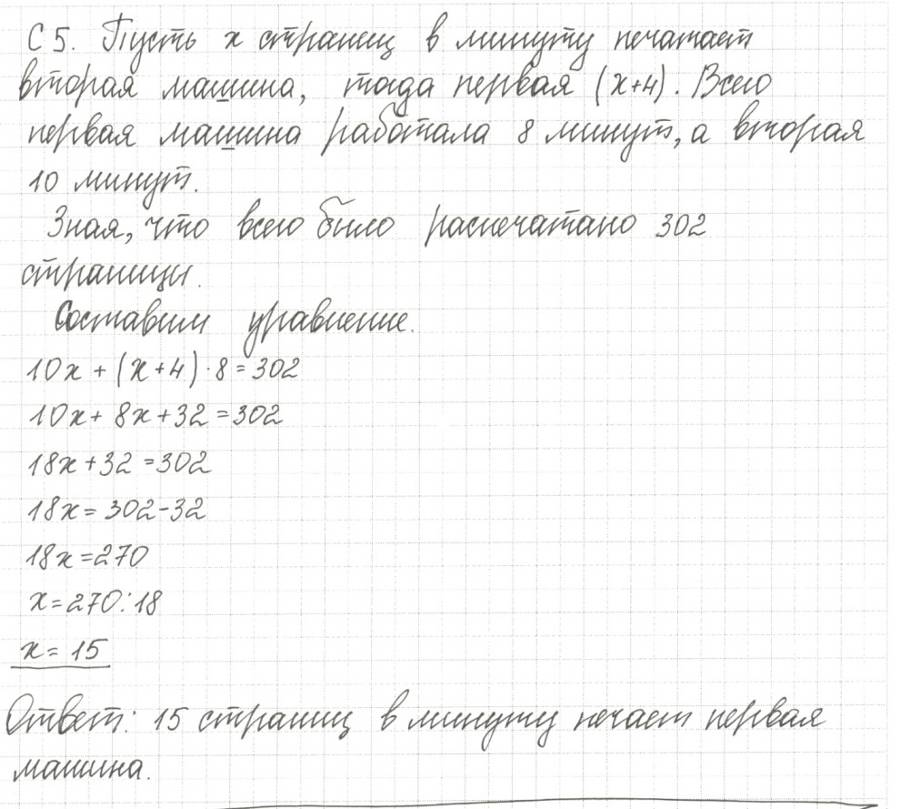 С 5. Пусть x страниц в минуту печатает
вторая машина, тогда первая (x+4). Всего
первая машина работала 8 минут, а вторая
10 минут.
Зная, что всего было распечатано 302
страницы.
Составим уравнение.
10x + (x+4) · 8 = 302
10x + 8x + 32 = 302
18x + 32 = 302
18x = 302 - 32
18x = 270
x = 270 : 18
x = 15
Ответ: 15 страниц в минуту печает первая
машина.